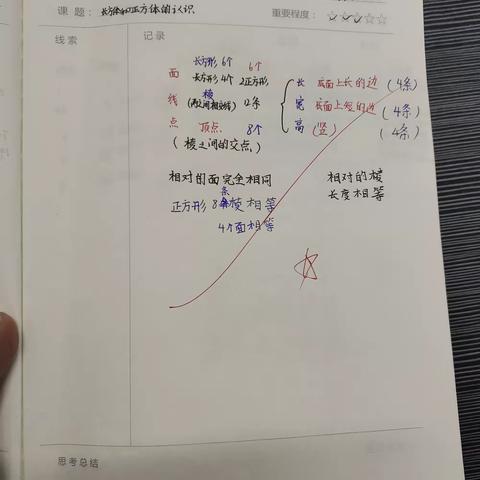 课题：长方体和正方体的认识
重要程度：☆☆☆☆☆
线索
记录
面 长方形6个 6个
长方形4个 2正方形
线 棱 (两面相交线) 12条
点 顶点 8个
(棱之间的交点)
长 底面上长的边 (4条)
宽 底面上短的边 (4条)
高 (竖) (4条)
相对的面完全相同
相对的棱
长度相等
正方形 8条棱相等
4个面相等
思考总结